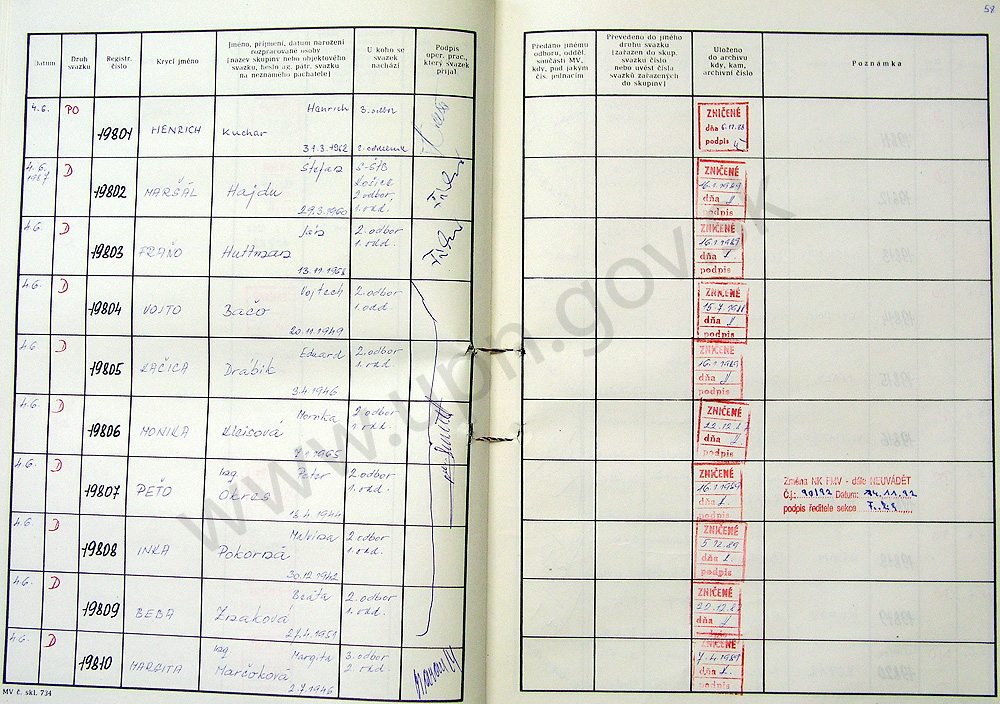 58
Datum
Druh svazku
Registr. číslo
Krycí jméno
Jméno, příjmení, datum narození
rozpracované osoby
[název skupiny nebo objektového
svazku, heslo ag. pátr. svazku
na neznámého pachatele]
U koho se
svazek
nachází
Podpis
oper. prac.,
který svazek
přijal
Předáno jinému
odboru, odděl.
součásti MV,
kdy, pod jakým
čís. jednacím
Převedeno do jiného
druhu svazku
[zařazen do skup.
svazku číslo
nebo uvést čísla
svazků zařazených
do skupiny]
Uloženo
do archivu
kdy, kam,
archivní číslo
Poznámka
4.6. PO 19801 HENRICH Henrich
Kuchar
31.3.1962
3. odbor
2. oddelenie
ZNIČENÉ
dňa 6.12.88
podpis
4.6.
1987 D 19802 MARŠÁL Štefan
Hajdu
29.3.1960
S-ŠtB
Košice
2. odbor,
1. odd.
ZNIČENÉ
16.1.1989
dňa
podpis
4.6. D 19803 FRAŇO Ján
Huttman
2. odbor
1. odd.
ZNIČENÉ
16.1.1989
dňa
podpis
4.6. D 19804 VOJTO Vojtech
Bačo
20.11.1949
2. odbor
1. odd.
ZNIČENÉ
dňa
podpis
4.6. D 19805 KAČICA Eduard
Drábik
3.4.1946
2. odbor
1. odd.
ZNIČENÉ
16.1.1989
dňa
podpis
4.6. D 19806 MONIKA Monika
Kleisová
2. odbor
1. odd.
ZNIČENÉ
dňa
podpis
4.6. D 19807 PEŤO Ing. Peter
Okres
2. odbor
1. odd.
ZNIČENÉ
16.1.1989
dňa
podpis
Změna NK FMV - dále NEUVÁDĚT
Č.j.: 90/92 Datum: 24.11.92
podpis ředitele sekce
4.6. D 19808 INKA Malvína
Pokorná
30.12.1942
2. odbor
1. odd.
ZNIČENÉ
5.12.89
dňa
podpis
4.6. D 19809 BEBA Beáta
Znaková
27.4.1951
2. odbor
1. odd.
ZNIČENÉ
dňa
podpis
4.6. D 19810 MARGITA Ing. Margita
Marčoková
2.7.1946
3. odbor
2. odd.
ZNIČENÉ
7.4.1989
dňa
podpis
MV č. skl. 734
www.upn.gov.sk